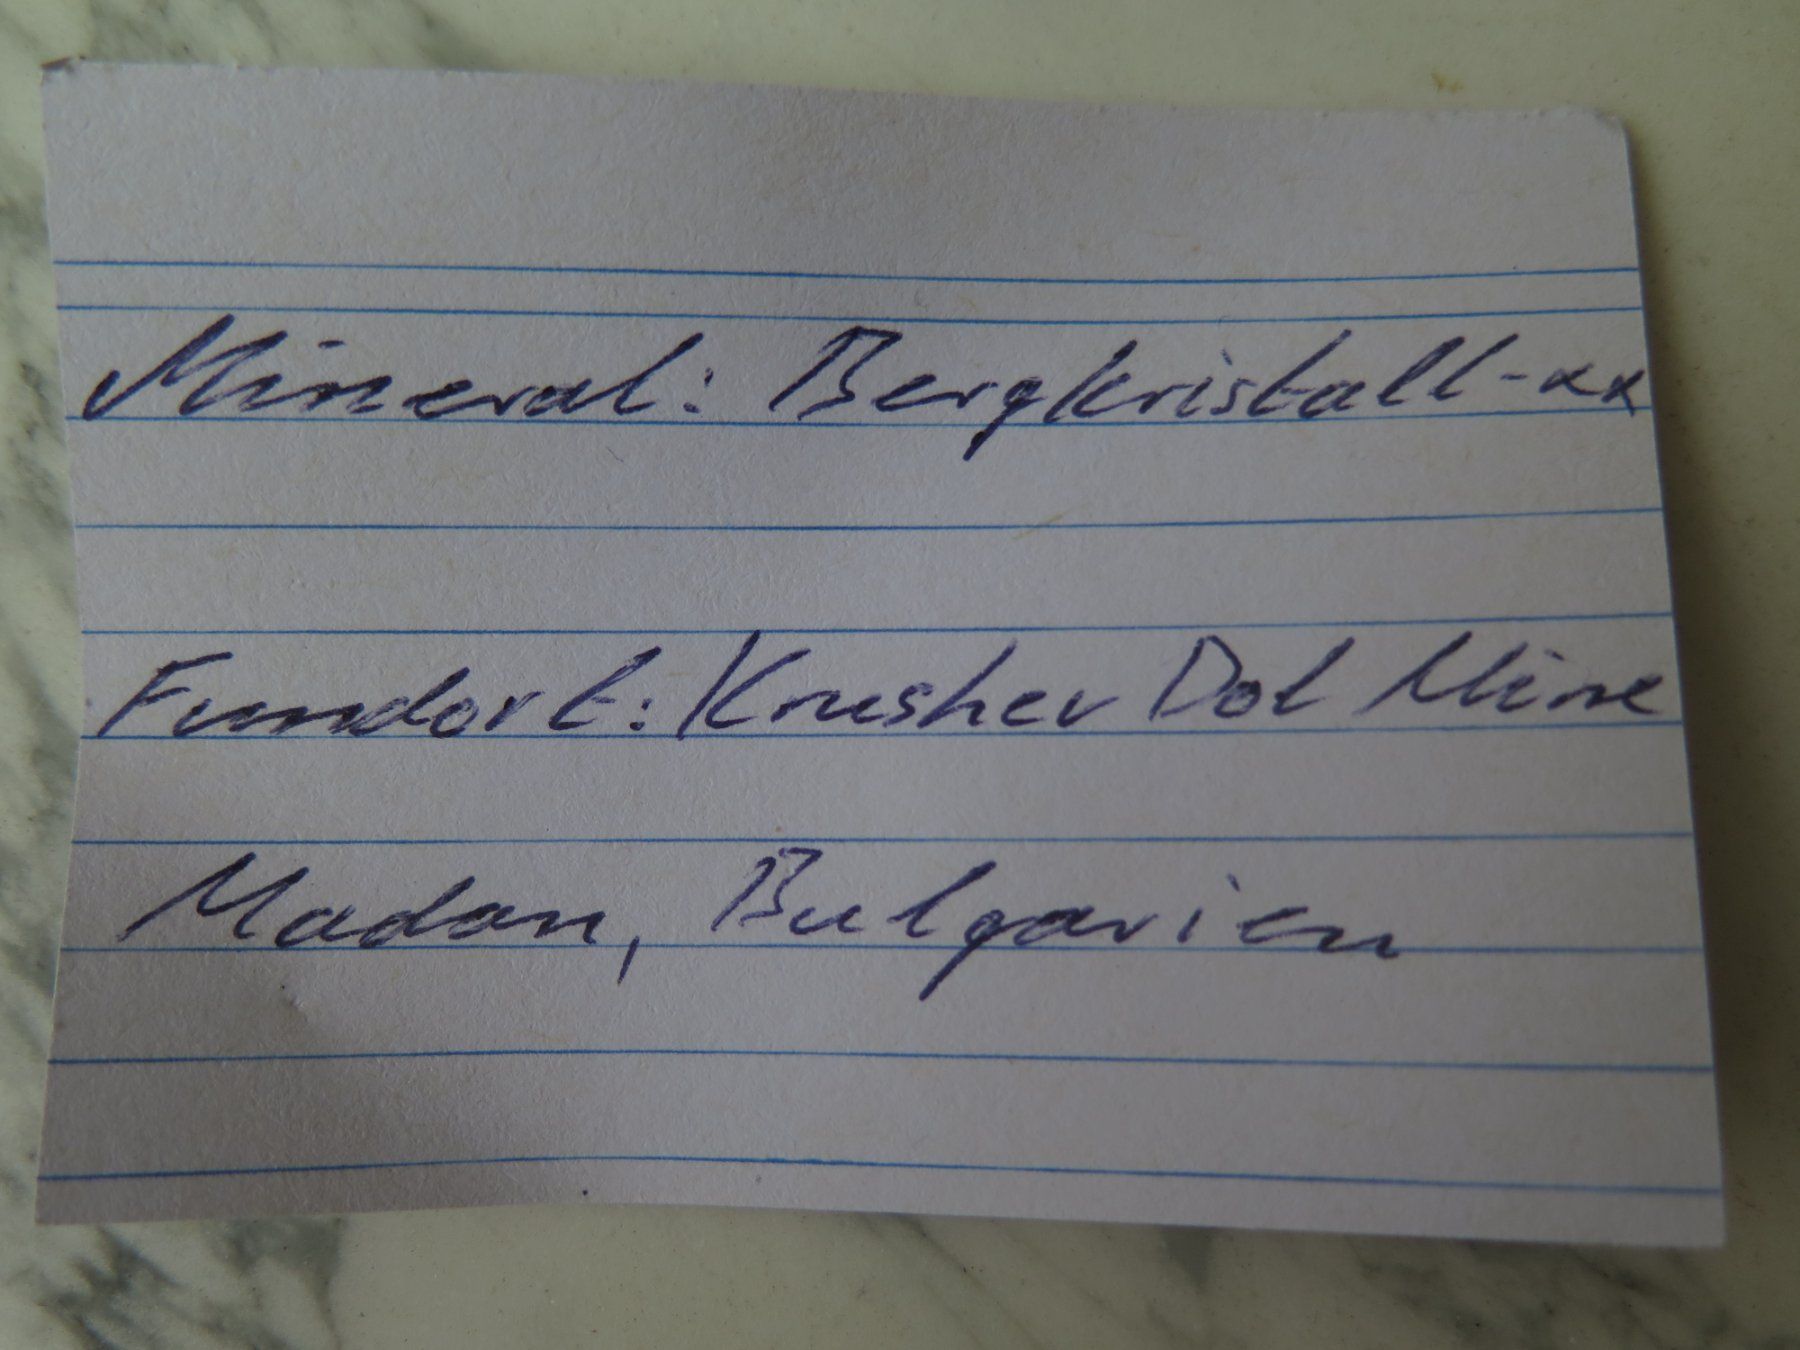 Mineral: Bergkristall-xx
Fundort: Krushev Dol Mine
Madan, Bulgarien